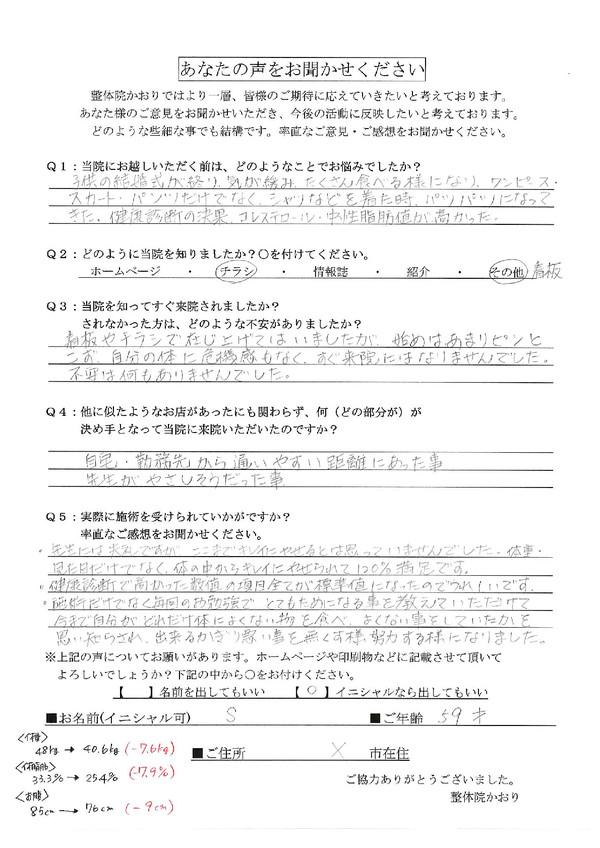 あなたの声をお聞かせください
整体院かおりではより一層、皆様のご期待に応えていきたいと考えております。
あなた様のご意見をお聞かせいただき、今後の活動に反映したいと考えております。
どのような些細な事でも結構です。率直なご意見・ご感想をお聞かせください。
Q1：当院にお越しいただく前は、どのようなことでお悩みでしたか？
子供の結婚式が終り、気が緩み、たくさん食べる様になり、ワンピース・
スカート・パンツだけでなく、シャツなどを着た時、パツパツになって
きた。健康診断の決果、コレステロール・中性脂肪値が高かった。
Q2：どのように当院を知りましたか？〇を付けてください。
ホームページ ・ チラシ ・ 情報誌 ・ 紹介 ・ その他 看板
Q3：当院を知ってすぐ来院されましたか？
されなかった方は、どのような不安がありましたか？
看板やチラシで存じ上げてはいましたが、始めはあまりピンと
こず、自分の体に危機感もなく、すぐ来院にはなりませんでした。
不安は何もありませんでした。
Q4：他に似たようなお店があったにも関わらず、何（どの部分が）が
決め手となって当院に来院いただいたのですか？
自宅・勤務先から通いやすい距離にあった事
先生がやさしそうだった事
Q5：実際に施術を受けられていかがですか？
率直なご感想をお聞かせください。
先生には失礼ですが、ここまでキレイにやせるとは思っていませんでした。体重・
見た目だけでなく、体の中からキレイにやせられて120%満足です。
健康診断で高かった数値の項目全てが標準値になったのでうれしいです。
施術だけでなく毎回のお勉強で、とてもためになる事を教えていただけて
今まで自分がどれだけ体によくない物を食べ、よくない事をしていたかを
思い知らされ、出来るかぎり悪い事を無くす様、努力する様になりました。
※上記の声についてお願いがあります。ホームページや印刷物などに記載させて頂いて
よろしいでしょうか？下記の中から〇をお付けください。
【　】名前を出してもいい 【〇】イニシャルなら出してもいい
■お名前(イニシャル可) S ■ご年齢 59才
<体重>
48kg → 40.6kg (-7.6kg)
■ご住所 × 市在住
<体脂肪>
33.3% → 25.4% (-7.9%)
ご協力ありがとうございました。
<お腹>
85cm → 76cm (-9cm)
整体院かおり